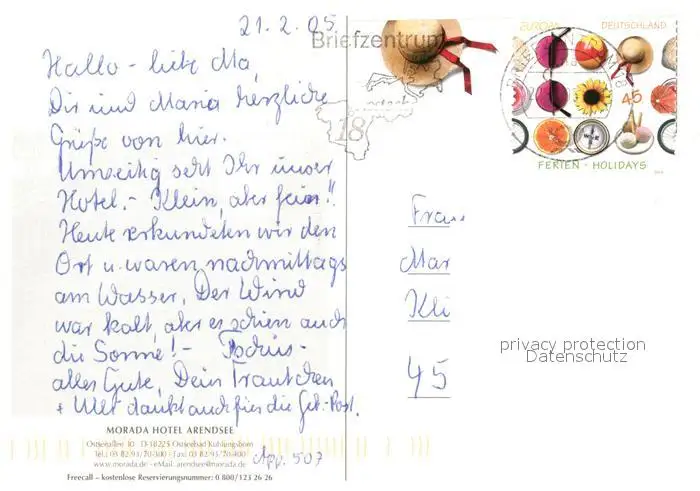 21.2.05
Hallo - liebe Ma,
Dir und Maria herzliche
Grüße von hier.
Umseitig seht Ihr unser
Hotel. - Klein, aber fein!!
Heute erkundeten wir den
Ort u. waren nachmittags
am Wasser. Der Wind
war kalt, aber es schien auch
die Sonne! - Tschüs -
alles Gute, Dein Trautchen
+ Ulli dankt auch für die Geb. Post.
MORADA HOTEL ARENDSEE
Ostseeallee 30 D-18225 Ostseebad Kühlungsborn
Tel.: 03 82 93/70-300 Fax: 03 82 93/70-400
www.morada.de - eMail: arendsee@morada.de
App. 507
Freecall – kostenlose Reservierungsnummer: 0 800/123 26 26
Briefzentrum
18
EUROPA
DEUTSCHLAND
45
FERIEN · HOLIDAYS
Frau
Mar
Kli
45
privacy protection
Datenschutz